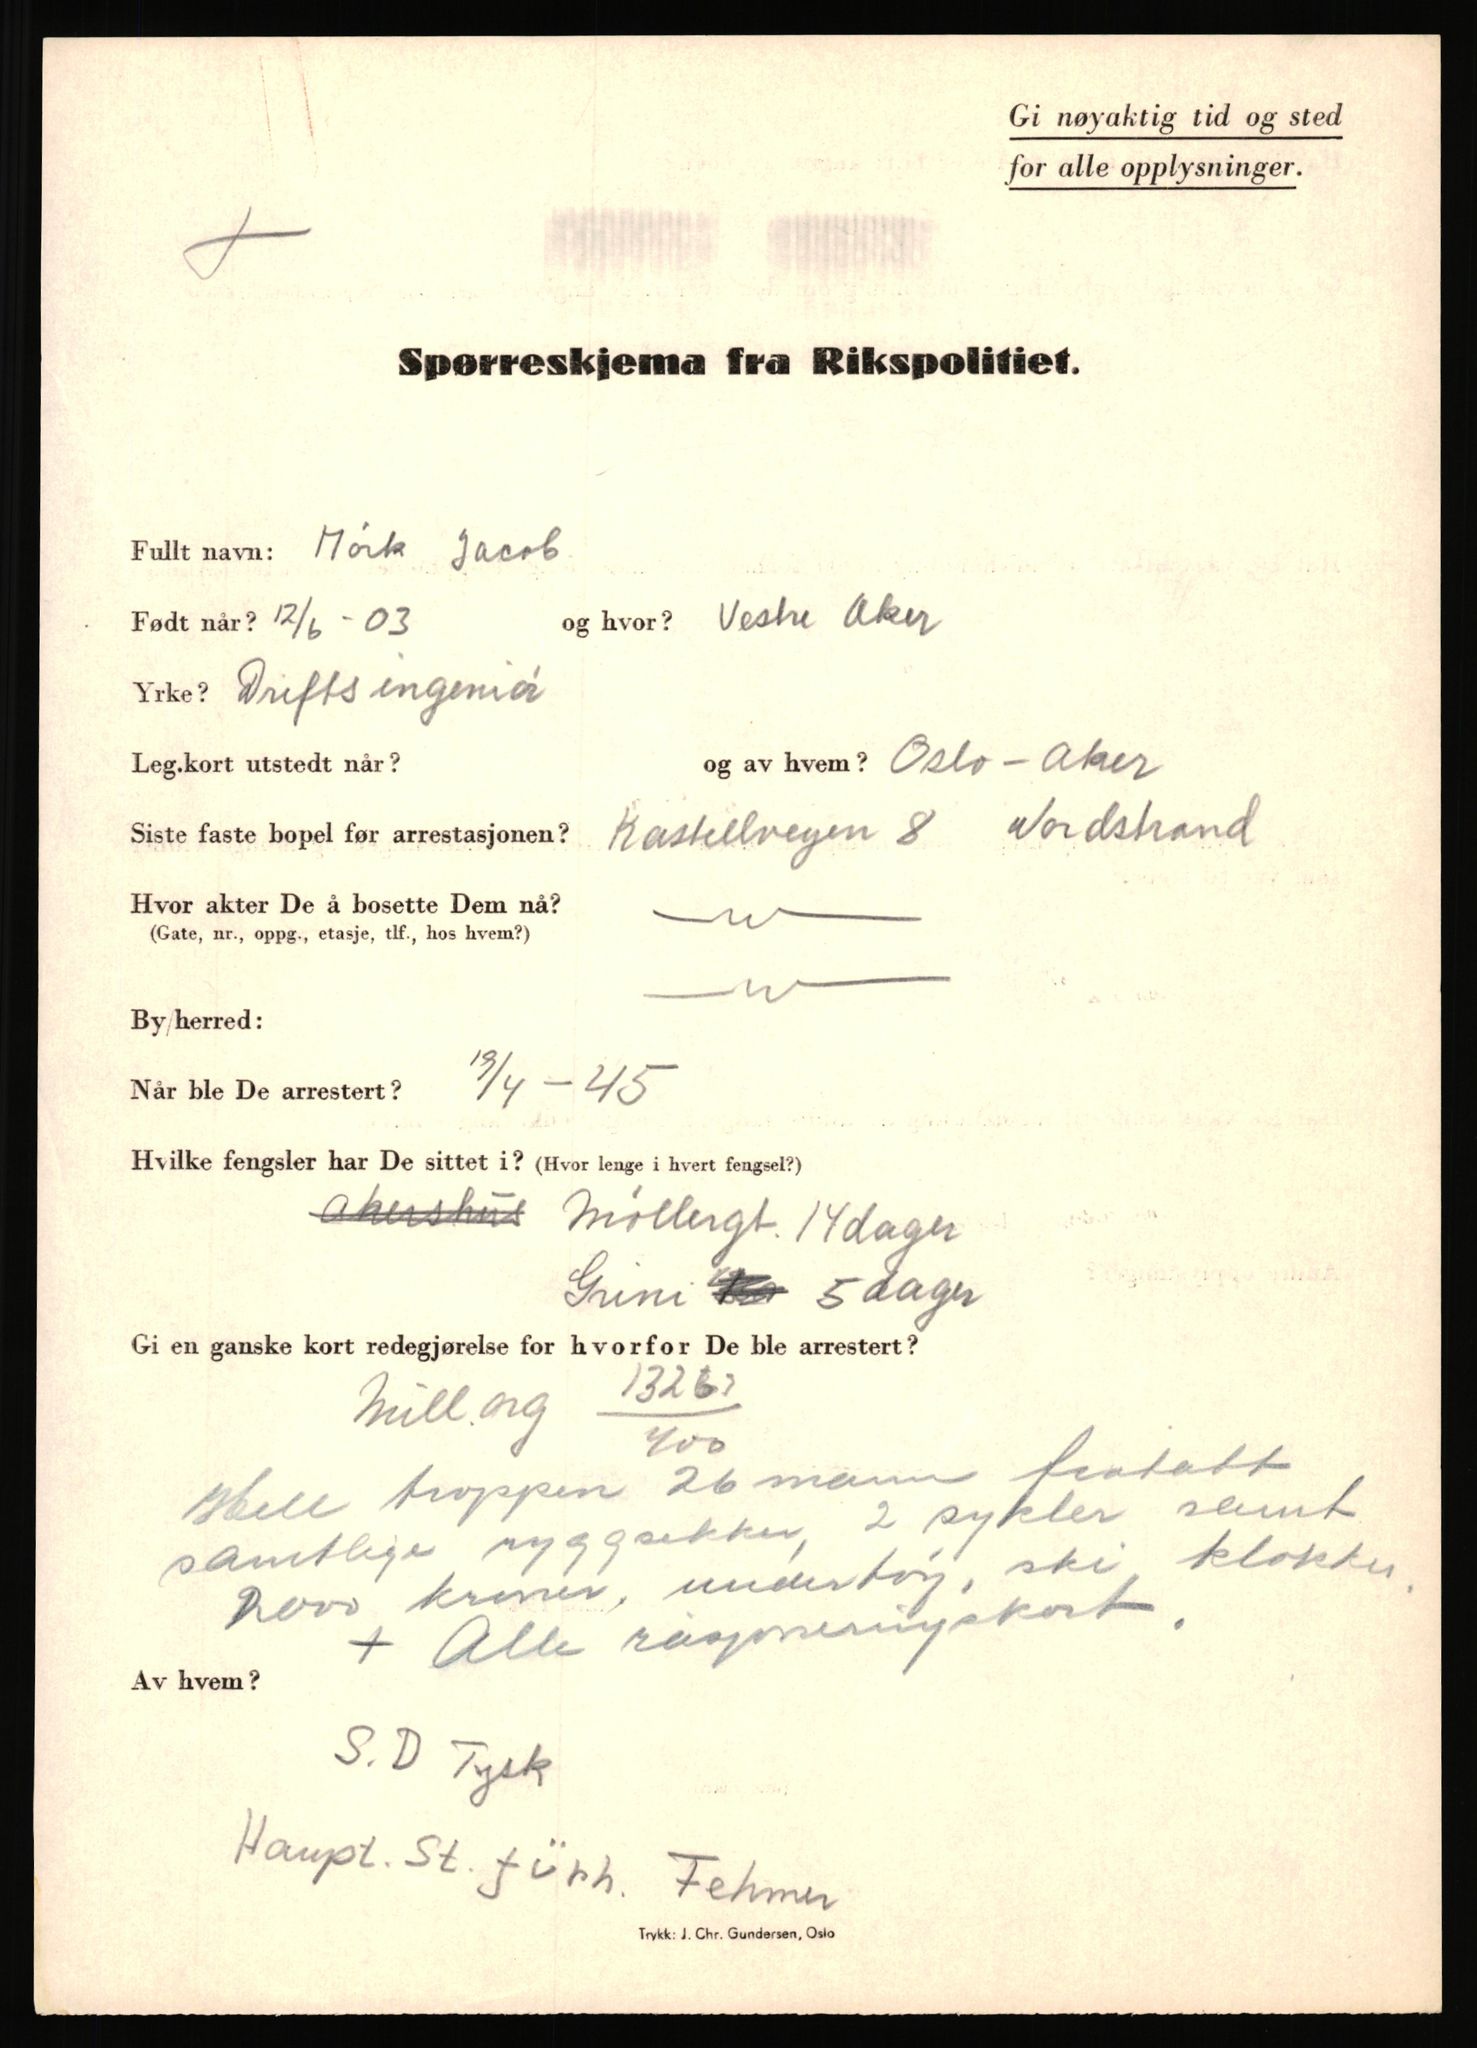 Gi nøyaktig tid og sted
for alle opplysninger.
Spørreskjema fra Rikspolitiet.
Fullt navn: Mórk Jacob
Født når? 12/6 - 03 og hvor? Vestre Aker
Yrke? Driftsingeniór
Leg.kort utstedt når? og av hvem? Oslo - Aker
Siste faste bopel før arrestasjonen? Kastellveyen 8 Nordstrand
Hvor akter De å bosette Dem nå?
(Gate, nr., oppg., etasje, tlf., hos hvem?)
By/herred:
Når ble De arrestert? 19/4 - 45
Hvilke fengsler har De sittet i? (Hvor lenge i hvert fengsel?)
Akershus Móllergt. 14 dager
Grini 5 dager
Gi en ganske kort redegjørelse for hvorfor De ble arrestert?
Mill.org 1326
400
Hele troppen 26 mann fratatt
samtlige ryggsekker, 2 sykler samt
2000 kroner, undertóy, ski, klokker.
+ Alle rasjoneringskort.
Av hvem?
S.D Tysk
Haupt. St. führ. Fehmer
Trykk: J. Chr. Gundersen, Oslo